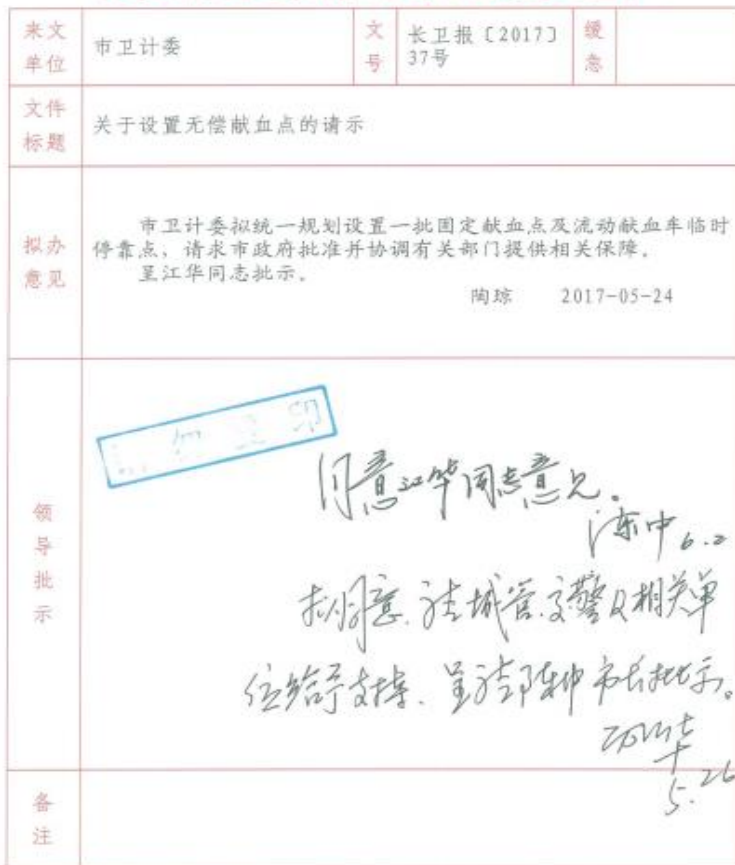 来文
单位
市卫计委
文
号
长卫报〔2017〕
37号
缓
急
文件
标题
关于设置无偿献血点的请示
拟办
意见
市卫计委拟统一规划设置一批固定献血点及流动献血车临时
停靠点，请求市政府批准并协调有关部门提供相关保障。
呈江华同志批示。
陶琼 2017-05-24
领
导
批
示
同意江华同志意见。
6.2
拟同意.请城管.交警及相关单
位给予支持.呈请陈中市长批示。
华
5.26
备
注